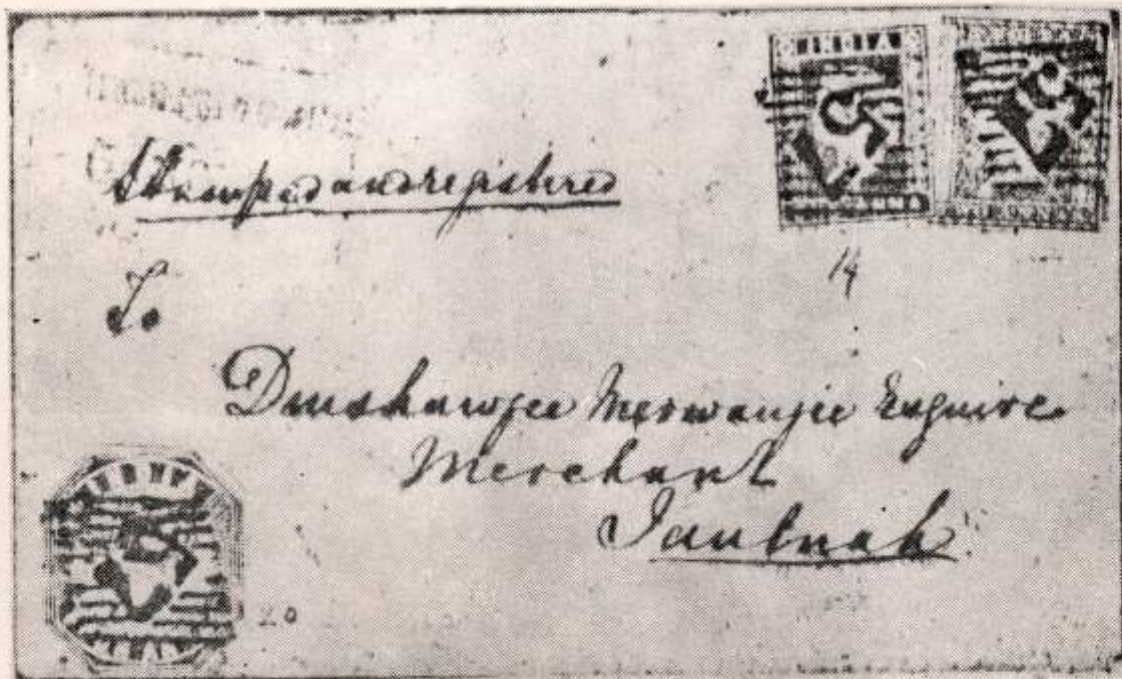 Stamped and registered
INDIA
ONE ANNA
14
To
Dinshawjee Merwanjee Esquire
Merchant
Jaulnah
INDIA
20